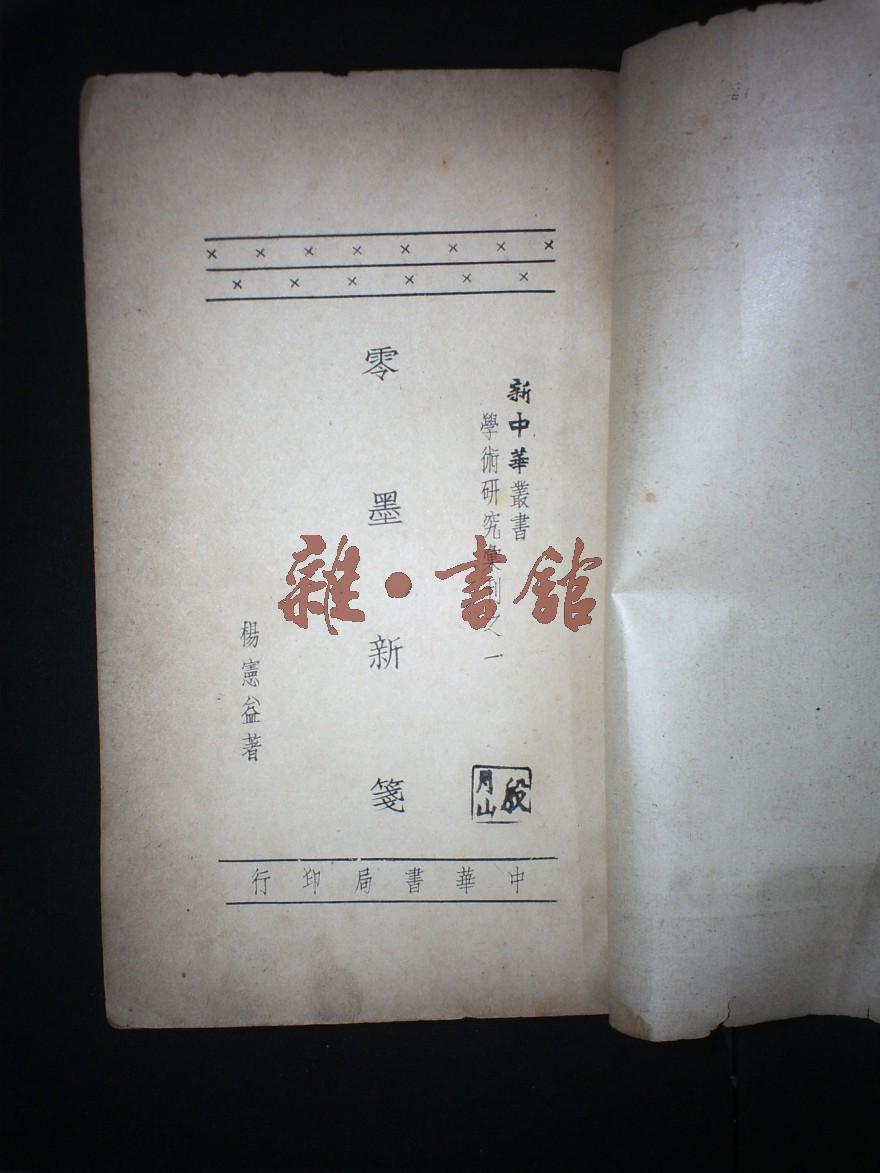 新中華叢書
學術研究彙刊之一
零墨新箋
楊憲益著
殷月山
中華書局印行
雜·書館